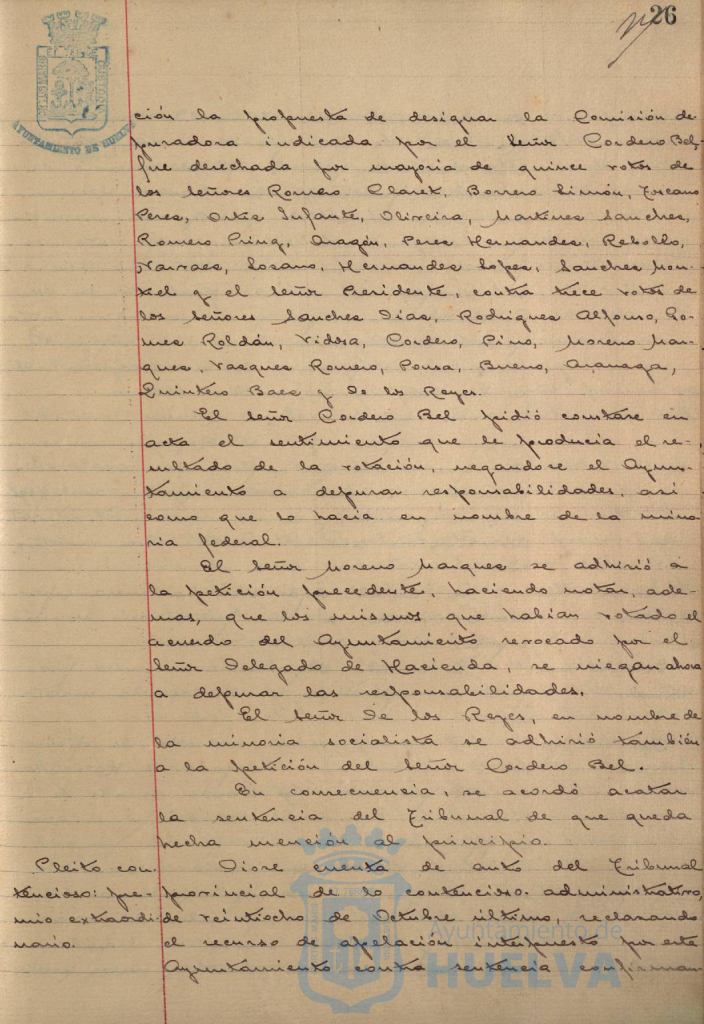 26
AYUNTAMIENTO DE HUELVA
ción la propuesta de designar la Comisión de
puradora indicada por el Señor Cordero Bel,
fue desechada por mayoria de quince votos de
los Señores Romero Claret, Borrero Limón, Toscano
Perez, Ortiz Infante, Oliveira, Martinez Sanchez,
Romero Pring, Aragón, Perez Hernandez, Rebollo,
Narvaez, Lozano, Hernandez Lopez, Sanchez Mon-
tiel y el Señor Presidente, contra trece votos de
los Señores Sanchez Dias, Rodriguez Alfonso, Go-
mez Roldán, Vidosa, Cordero, Pino, Moreno Mar-
quez, Vazquez Romero, Ponsa, Bueno,
Quintero Baez y De los Reyes.
El Señor Cordero Bel pidió constase en
acta el sentimiento que le producia el re-
sultado de la votación, negandose el Ayun-
tamiento a depurar responsabilidades, asi
como que lo hacia en nombre de la mino
ria federal.
El Señor Moreno Marquez se adhirió a
la petición precedente, haciendo notar, ade-
mas, que los mismos que habian votado el
acuerdo del Ayuntamiento revocado por el
Señor Delegado de Hacienda, se niegan ahora
a depurar las responsabilidades.
El Señor De los Reyes, en nombre de
la minoria socialista se adhirió también
a la petición del Señor Cordero Bel.
En consecuencia, se acordó acatar
la sentencia del Tribunal de que queda
hecha mención al principio.
Pleito con
tencioso: pre-
mio extraordi
nario.
Diose cuenta de auto del Tribunal
provincial de lo contencioso-administrativo,
de veintiocho de Octubre último, reclamando
el recurso de apelación interpuesto por este
Ayuntamiento contra sentencia confirman-
Ayuntamiento de
HUELVA